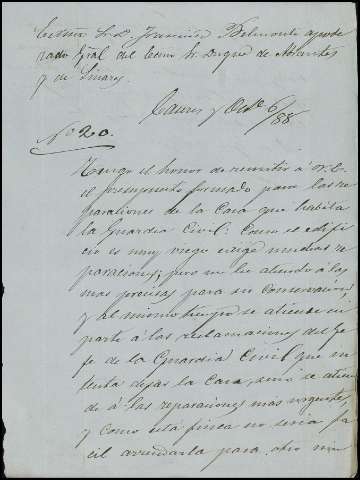 Exmo Sr. D. Francisco Belmonte apode
rado Gral del Exmo Sr. Duque de Abrantes
y de Linares.
y Octe 6/88
No 20.
Tengo el honor de remitir á V. E.
el presupuesto formado para las re
paraciones de la Casa que habita
la Guardia Civil: Como se edifi
cio es muy viejo exige muchas re
paraciones, pero me he atendido á las
mas precisas para su conservacion,
y al mismo tiempo se atiende en
parte á las reclamaciones del Ge
fe de la Guardia Civil que in
tenta dejar la Casa, sinó se atien
de á las reparaciones más urgentes,
y como esta finca no seria fa
cil arrendarla para otro